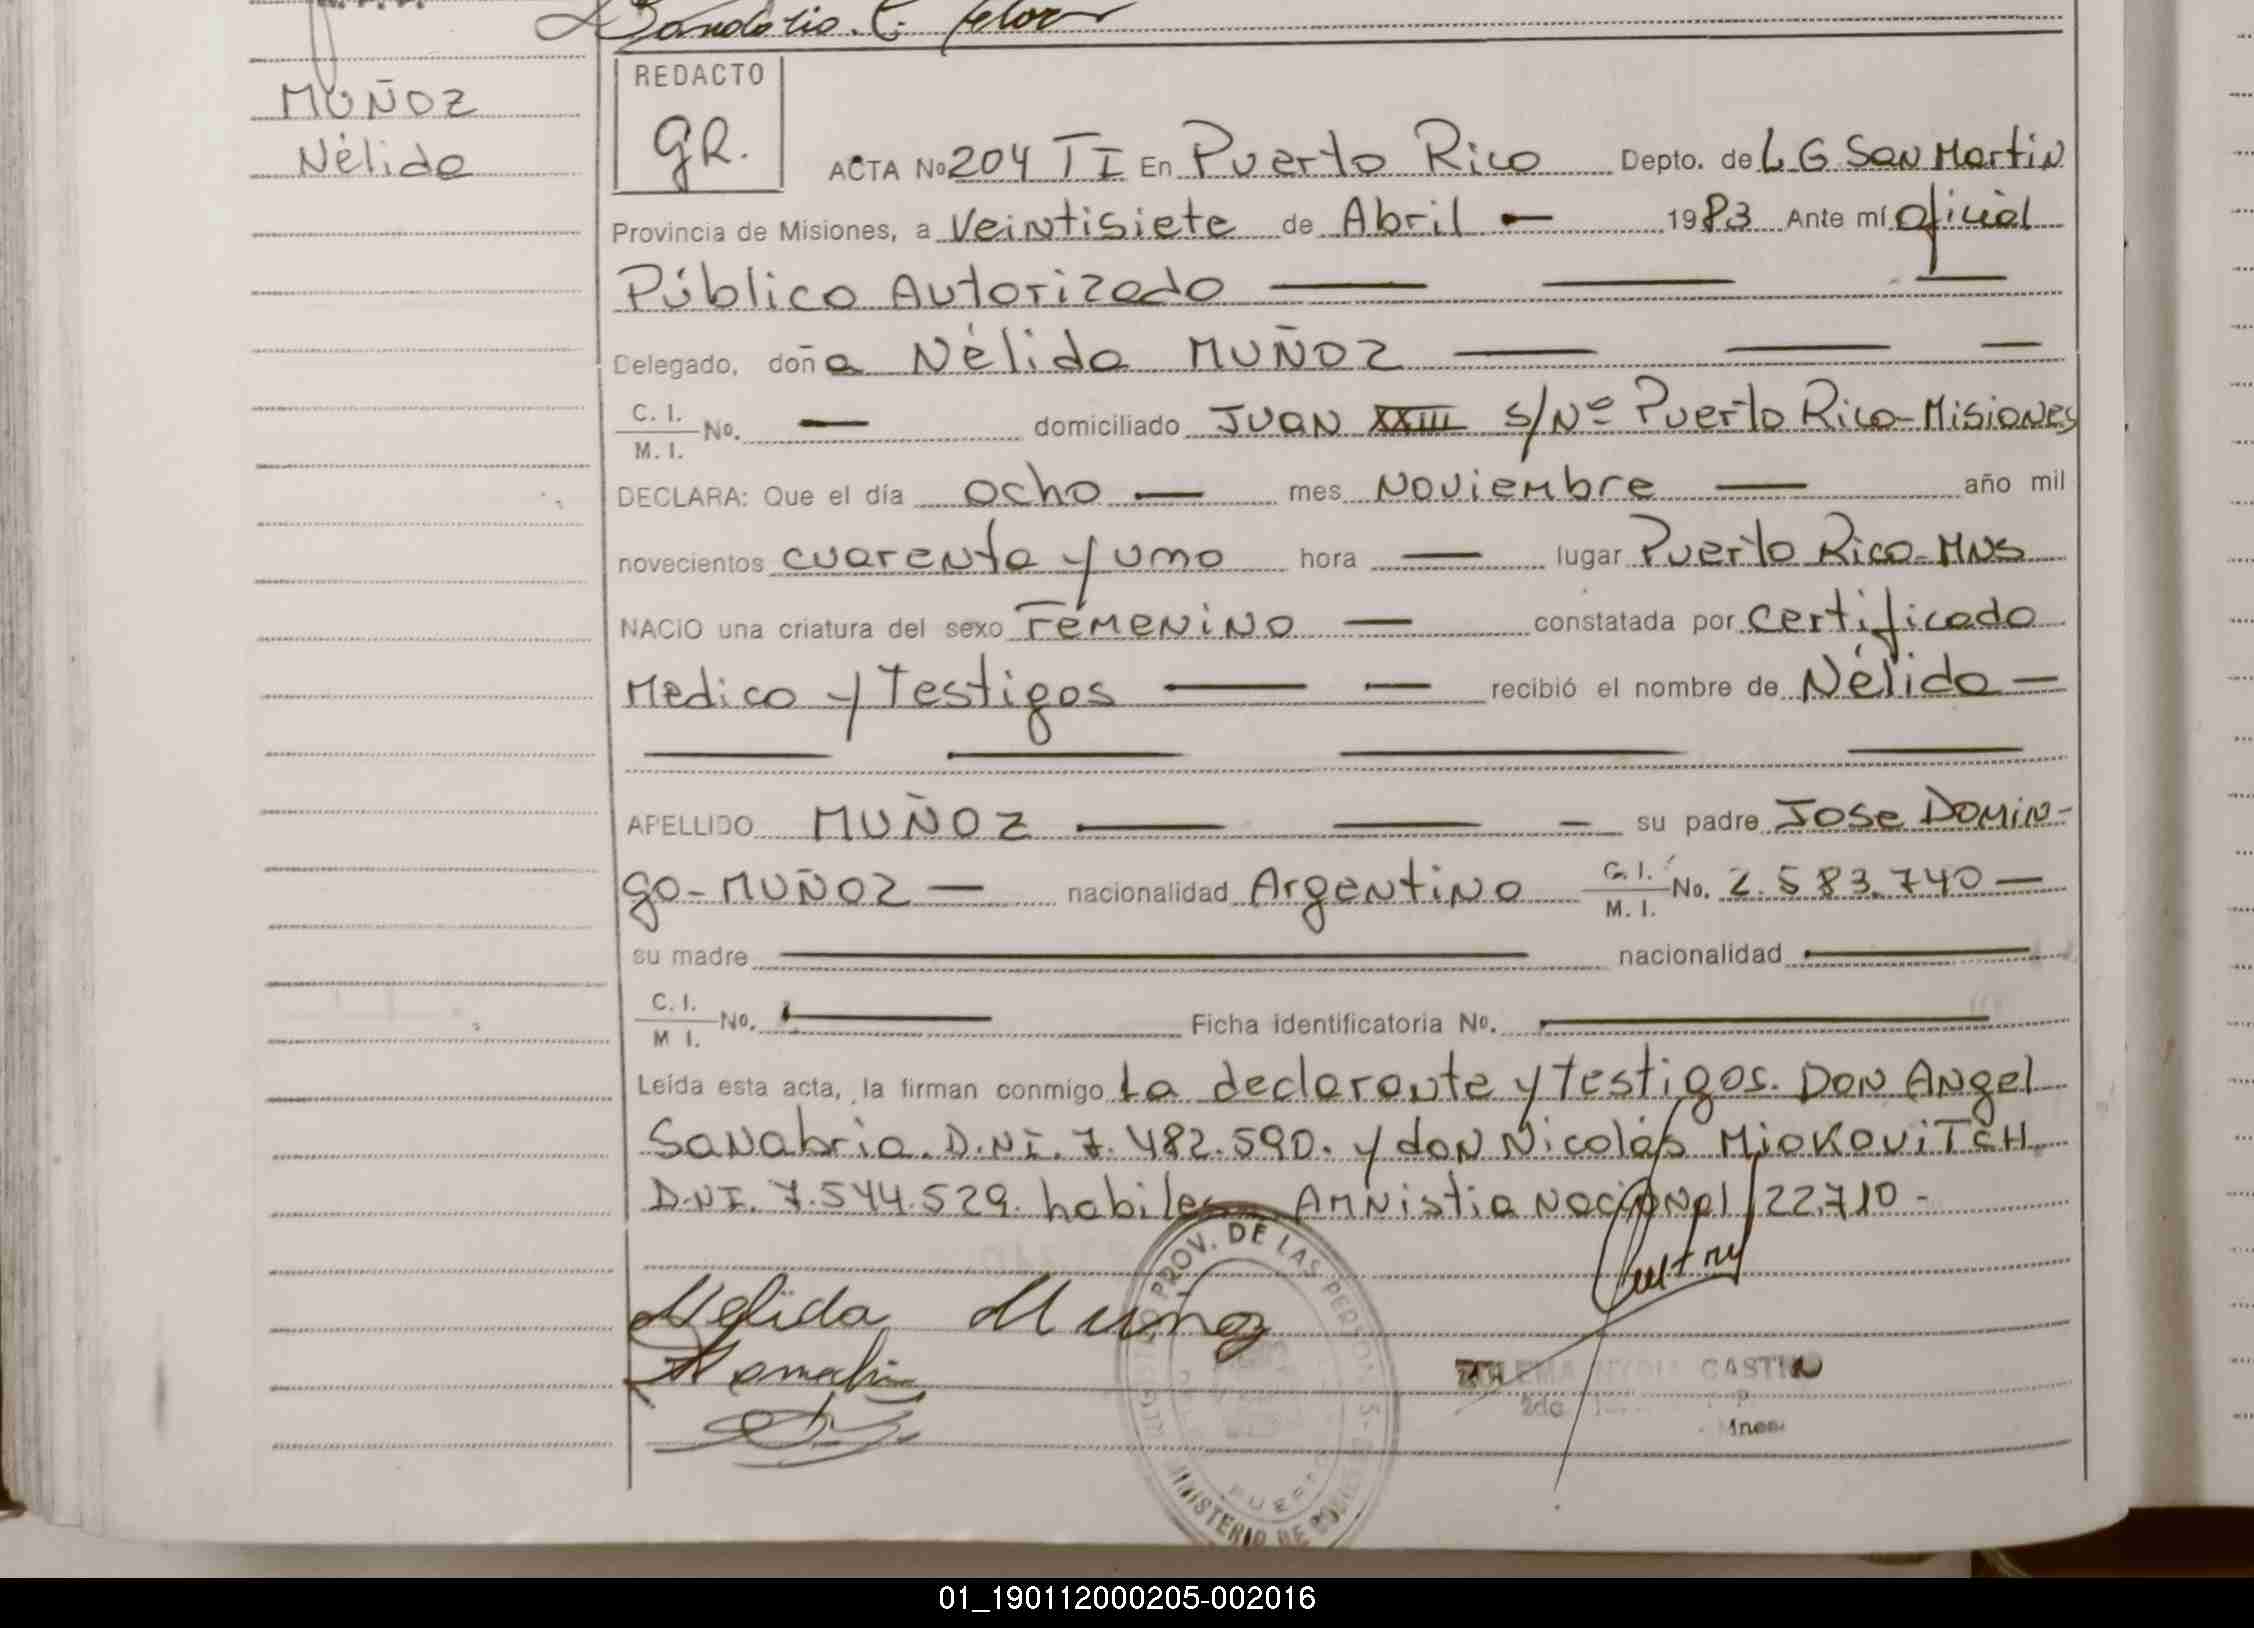 MUÑOZ
Nélida
REDACTO
GR.
ACTA No 204 TI En Puerto Rico Depto. de L.G. San Martin
Provincia de Misiones, a Veintisiete de Abril — 1983 Ante mí oficial
Público Autorizado — — —
Delegado, doña Nélida MUÑOZ — — —
C. I.
M. I. No. — domiciliado JUAN XXIII S/Nº Puerto Rico-Misiones
DECLARA: Que el día ocho — mes Noviembre — año mil
novecientos cuarenta y uno hora — lugar Puerto Rico-MNS
NACIO una criatura del sexo Femenino — constatada por certificado
Medico y Testigos — — recibió el nombre de Nélida —
— — — —
APELLIDO MUÑOZ — — — su padre Jose Domin-
go-MUÑOZ — nacionalidad Argentino C. I. M. I. No. 2.583.740 —
su madre — nacionalidad —
C. I.
M I. No. — Ficha identificatoria No. —
Leída esta acta, la firman conmigo La declarante y testigos. Don Angel
Sanabria. D.NI. 7.482.590. y don Nicolás MIOKOVITCH
D.NI. 7.544.529. habiles Amnistia Nacional 22.710-
Nelida Muñoz
PROV. DE LAS PERSONAS
CASTI
2do
MINISTERIO DE
01_190112000205-002016